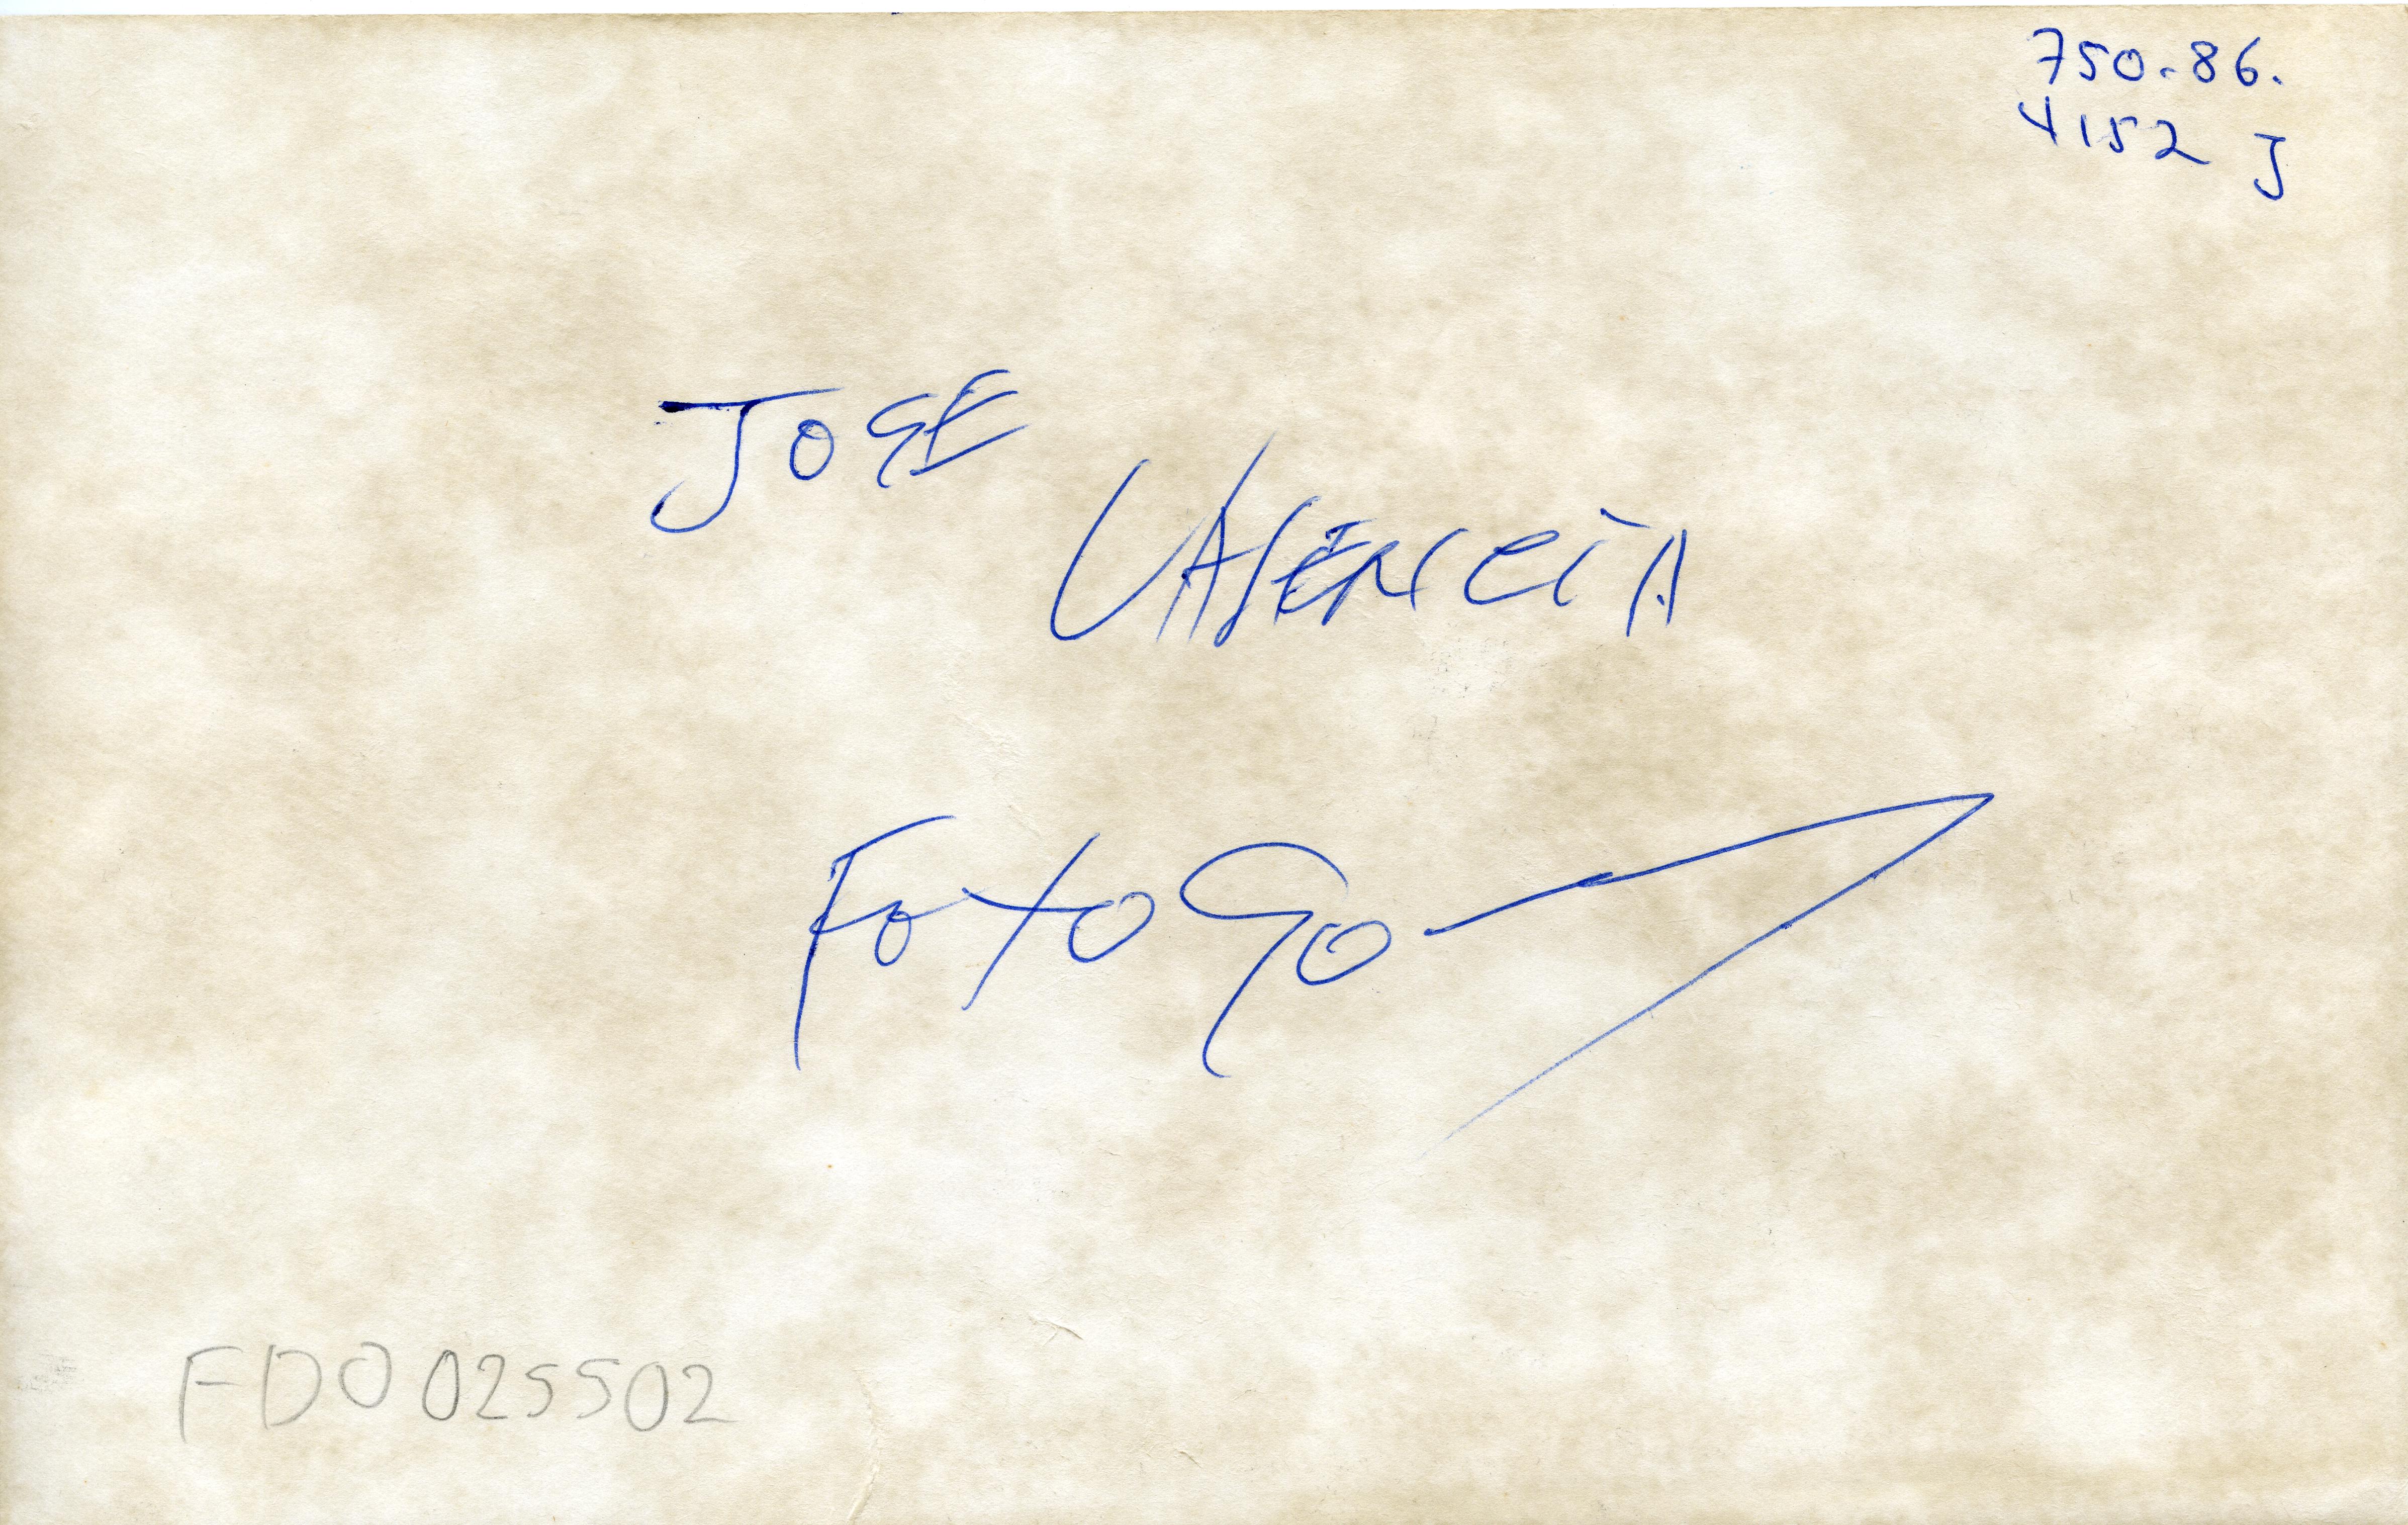 750-86.
4152 J
JOSE
VALENCIA
Foto Go
FDO 025502